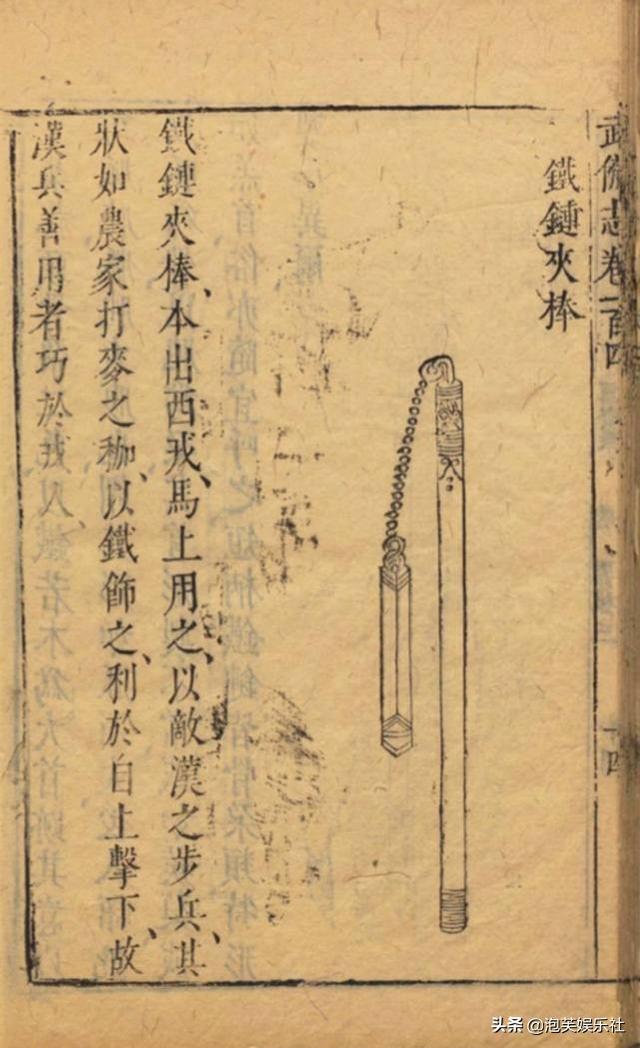 武備志卷一百四
十四
鐵鏈夾棒
鐵鏈夾棒、本出西戎、馬上用之、以敵漢之步兵、其
狀如農家打麥之枷、以鐵飾之、利於自上擊下、故
漢兵善用者巧於戎人、
头条 @泡芙娱乐社